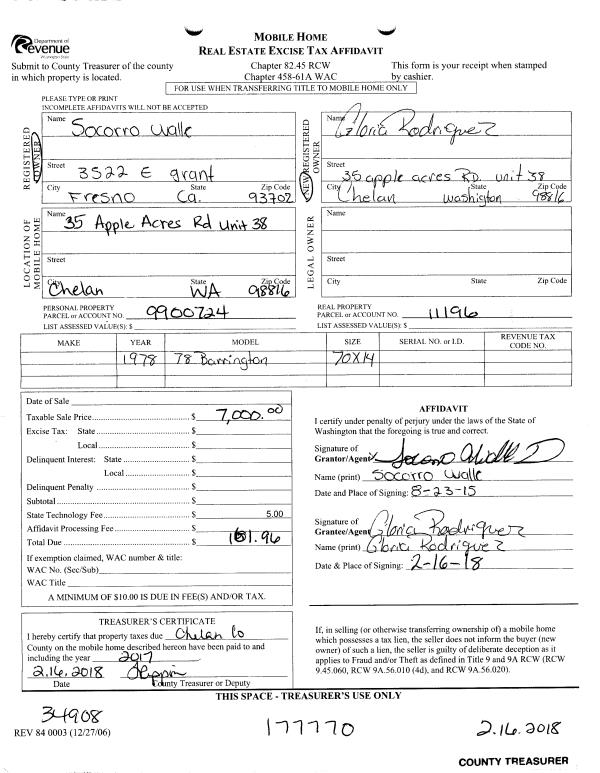 Department of
Revenue
Washington State
MOBILE HOME
REAL ESTATE EXCISE TAX AFFIDAVIT
Submit to County Treasurer of the county
in which property is located.
Chapter 82.45 RCW
Chapter 458-61A WAC
This form is your receipt when stamped
by cashier.
FOR USE WHEN TRANSFERRING TITLE TO MOBILE HOME ONLY
PLEASE TYPE OR PRINT
INCOMPLETE AFFIDAVITS WILL NOT BE ACCEPTED
REGISTERED OWNER
Name Socorro Walle
Street 3522 E grant
City State Zip Code
Fresno Ca. 93702
NEW REGISTERED OWNER
Name Gloria Rodriguez
Street 35 apple acres RD. unit 38
City State Zip Code
Chelan washington 98816
LOCATION OF MOBILE HOME
Name 35 Apple Acres Rd Unit 38
Street
City State Zip Code
Chelan WA 98816
LEGAL OWNER
Name
Street
City State Zip Code
PERSONAL PROPERTY
PARCEL or ACCOUNT NO. 9900724
LIST ASSESSED VALUE(S): $
REAL PROPERTY
PARCEL or ACCOUNT NO. 11196
LIST ASSESSED VALUE(S): $
MAKE YEAR MODEL SIZE SERIAL NO. or I.D. REVENUE TAX CODE NO.
1978 78 Barrington 70X14
Date of Sale
Taxable Sale Price $ 7,000.00
Excise Tax: State $
Local $
Delinquent Interest: State $
Local $
Delinquent Penalty $
Subtotal $
State Technology Fee $ 5.00
Affidavit Processing Fee $
Total Due $ 1 1.96
If exemption claimed, WAC number & title:
WAC No. (Sec/Sub)
WAC Title
A MINIMUM OF $10.00 IS DUE IN FEE(S) AND/OR TAX.
AFFIDAVIT
I certify under penalty of perjury under the laws of the State of
Washington that the foregoing is true and correct.
Signature of
Grantor/Agent
Name (print) Socorro Walle
Date and Place of Signing: 8-23-15
Signature of
Grantee/Agent Gloria Rodriguez
Name (print) Gloria Rodriguez
Date & Place of Signing: 2-16-18
TREASURER'S CERTIFICATE
I hereby certify that property taxes due Chelan Co
County on the mobile home described hereon have been paid to and
including the year 2017
2.16.2018
Date County Treasurer or Deputy
If, in selling (or otherwise transferring ownership of) a mobile home
which possesses a tax lien, the seller does not inform the buyer (new
owner) of such a lien, the seller is guilty of deliberate deception as it
applies to Fraud and/or Theft as defined in Title 9 and 9A RCW (RCW
9.45.060, RCW 9A.56.010 (4d), and RCW 9A.56.020).
THIS SPACE - TREASURER'S USE ONLY
34908
177770
2.16.2018
REV 84 0003 (12/27/06)
COUNTY TREASURER